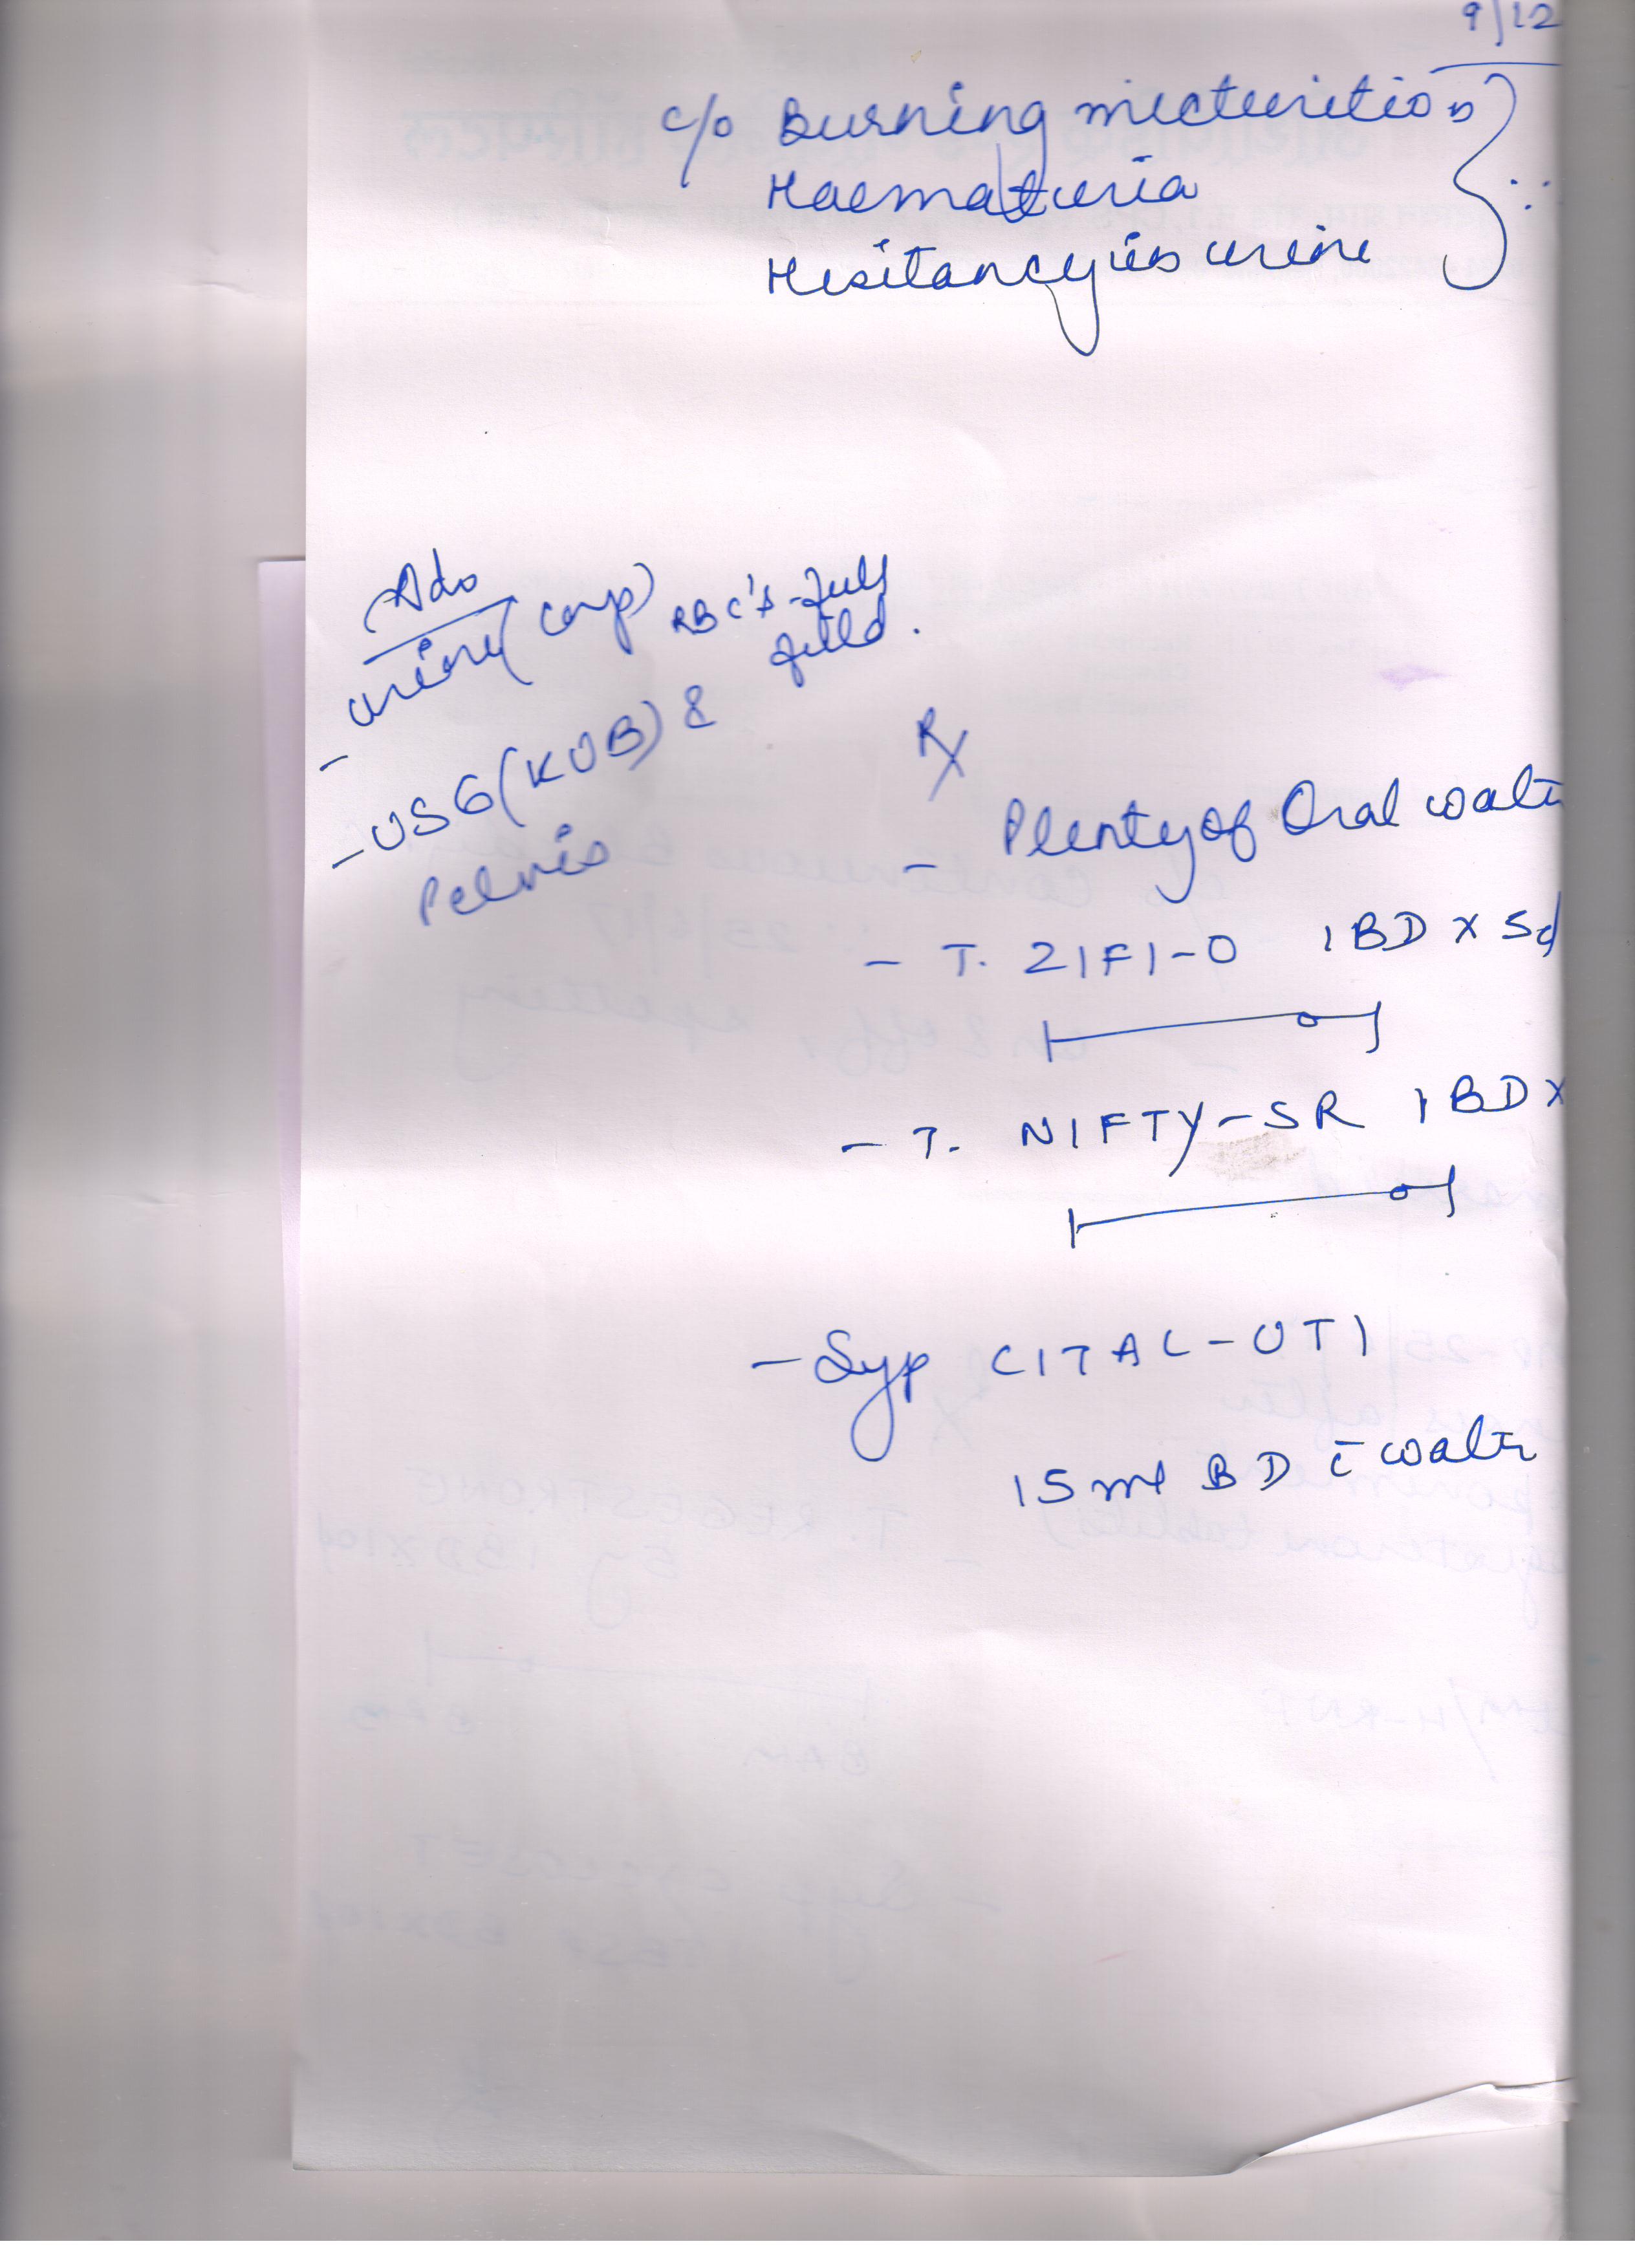 9/12
c/o Burning micturition
Haematuria
Hesitancy in urine
Adv
- urine (comp) RBC's - full
field.
- USG (KUB) &
Pelvis
Rx
- Plenty of Oral wate
- T. ZIFI-O 1 BD x 5d
- T. NIFTY-SR 1 BD x
- Syp CITAL-UTI
15 ml BD c̄ water